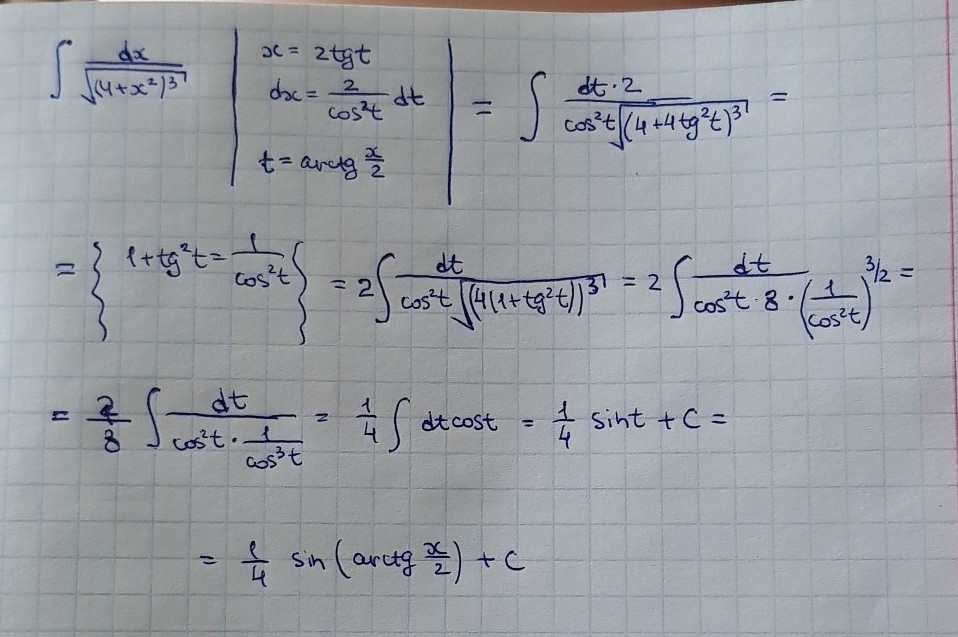 ∫ dx/√((4+x²)³) | x = 2tgt dx = 2/cos²t dt t = arctg x/2 | = ∫ dt·2/(cos²t√((4+4tg²t)³)) =
= { 1+tg²t = 1/cos²t } = 2∫ dt/(cos²t√((4(1+tg²t))³)) = 2∫ dt/(cos²t·8·(1/cos²t)^(3/2)) =
= 2/8 ∫ dt/(cos²t · 1/cos³t) = 1/4 ∫ dt cost = 1/4 sint + C =
= 1/4 sin(arctg x/2) + C